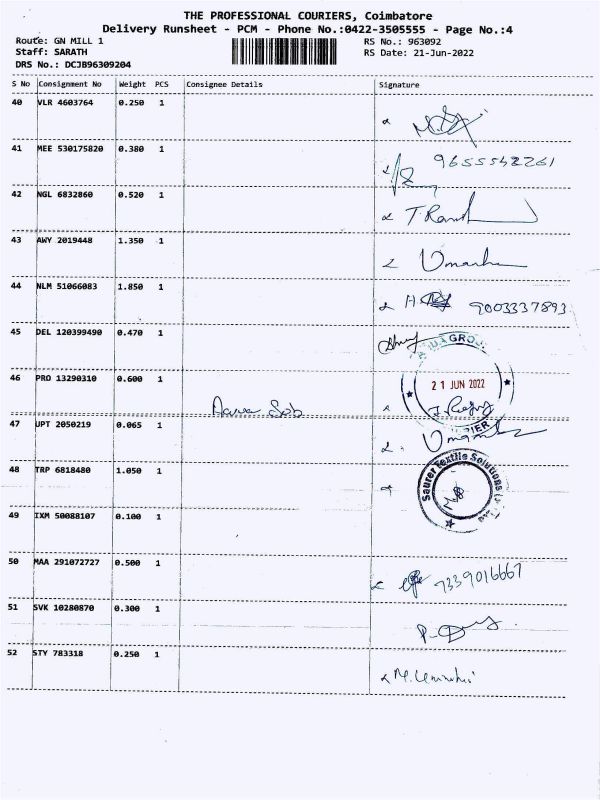 THE PROFESSIONAL COURIERS, Coimbatore
Delivery Runsheet - PCM - Phone No.:0422-3505555 - Page No.:4
Route: GN MILL 1
RS No.: 963092
Staff: SARATH
RS Date: 21-Jun-2022
DRS No.: DCJB96309204
S No Consignment No Weight PCS Consignee Details Signature
40 VLR 4603764 0.250 1
41 MEE 530175820 0.380 1 9655542261
42 NGL 6832860 0.520 1
43 AWY 2019448 1.350 1
44 NLM 51066083 1.850 1 9003337893
45 DEL 120399490 0.470 1
GROUP
46 PRO 13290310 0.600 1 21 JUN 2022
47 UPT 2050219 0.065 1
48 TRP 6818480 1.050 1 Saurer Textile Solutions
49 IXM 50088107 0.100 1
50 MAA 291072727 0.500 1 7339016667
51 SVK 10280870 0.300 1
52 STY 783318 0.250 1